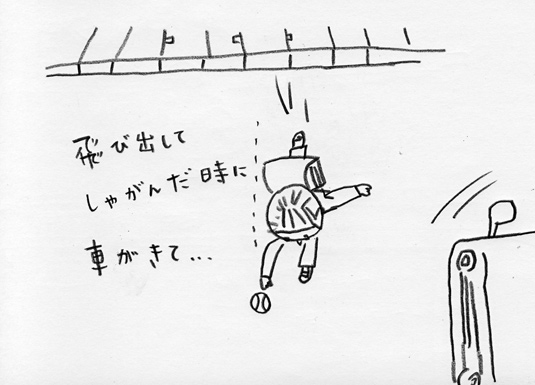 飛び出して
しゃがんだ時に
車がきて...